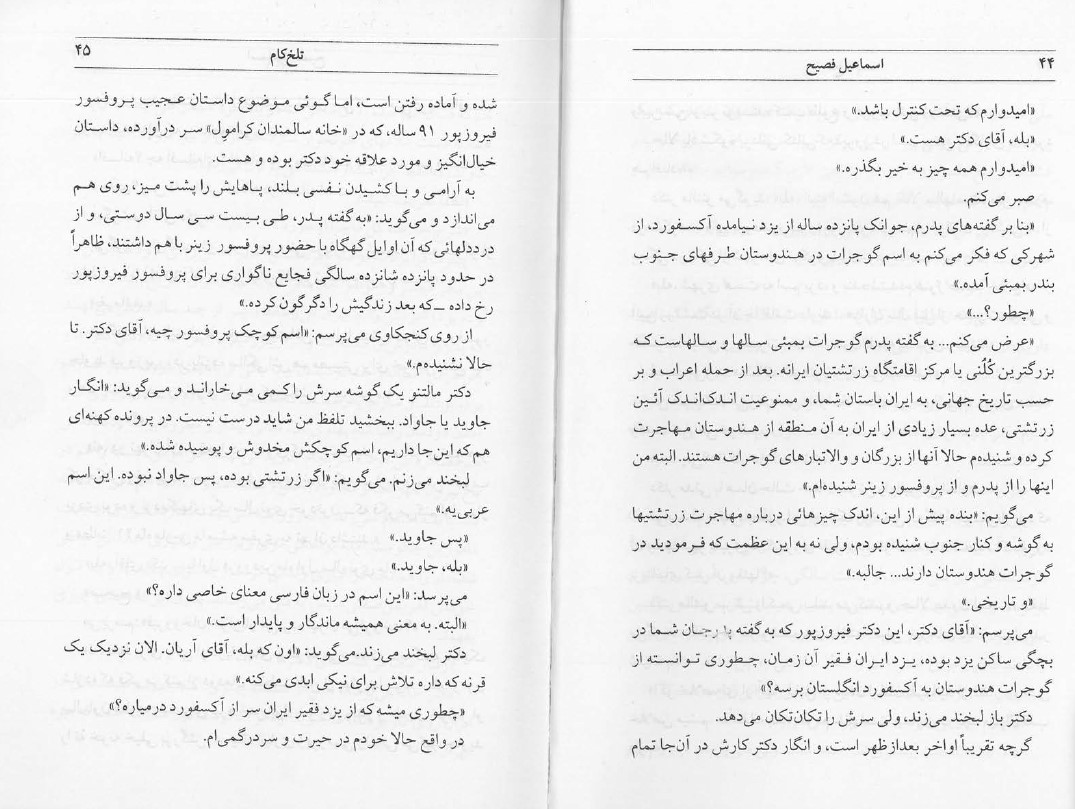 ۴۴ اسماعیل فصیح
«امیدوارم که تحت کنترل باشد.»
«بله، آقای دکتر هست.»
«امیدوارم همه چیز به خیر بگذره.»
صبر می‌کنم.
«بنا بر گفته‌های پدرم، جوانک پانزده ساله از یزد نیامده آکسفورد، از
شهرکی که فکر می‌کنم به اسم گوجرات در هندوستان طرفهای جنوب
بندر بمبئی آمده.»
«چطور؟...»
«عرض می‌کنم... به گفته پدرم گوجرات بمبئی سالها و سالهاست که
بزرگترین کُلُنی یا مرکز اقامتگاه زرتشتیان ایرانه. بعد از حمله اعراب و بر
حسب تاریخ جهانی، به ایران باستان شما، و ممنوعیت اندک‌اندک آئین
زرتشتی، عده بسیار زیادی از ایران به آن منطقه از هندوستان مهاجرت
کرده و شنیده‌م حالا آنها از بزرگان و والاتبارهای گوجرات هستند. البته من
اینها را از پدرم و از پروفسور زینر شنیده‌ام.»
می‌گویم: «بنده پیش از این، اندک چیزهائی درباره مهاجرت زرتشتیها
به گوشه و کنار جنوب شنیده بودم، ولی نه به این عظمت که فرمودید در
گوجرات هندوستان دارند... جالبه.»
«و تاریخی.»
می‌پرسم: «آقای دکتر، این دکتر فیروزپور که به گفته پدرجان شما در
بچگی ساکن یزد بوده، یزد ایران فقیر آن زمان، چطوری توانسته از
گوجرات هندوستان به آکسفورد انگلستان برسه؟»
دکتر باز لبخند می‌زند، ولی سرش را تکان‌تکان می‌دهد.
گرچه تقریباً اواخر بعدازظهر است، و انگار دکتر کارش در آن‌جا تمام
تلخ‌کام ۴۵
شده و آماده رفتن است، اما گوئی موضوع داستان عجیب پروفسور
فیروزپور ۹۱ ساله، که در «خانه سالمندان کرامول» سر درآورده، داستان
خیال‌انگیز و مورد علاقه خود دکتر بوده و هست.
به آرامی و با کشیدن نفسی بلند، پاهایش را پشت میز، روی هم
می‌اندازد و می‌گوید: «به گفته پدر، طی بیست سی سال دوستی، و از
درددلهائی که آن اوایل گهگاه با حضور پروفسور زینر با هم داشتند، ظاهراً
در حدود پانزده شانزده سالگی فجایع ناگواری برای پروفسور فیروزپور
رخ داده ــ که بعد زندگیش را دگرگون کرده.»
از روی کنجکاوی می‌پرسم: «اسم کوچک پروفسور چیه، آقای دکتر. تا
حالا نشنیده‌م.»
دکتر مالتنو یک گوشه سرش را کمی می‌خاراند و می‌گوید: «انگار
جاوید یا جاواد. ببخشید تلفظ من شاید درست نیست. در پرونده کهنه‌ای
هم که این‌جا داریم، اسم کوچکش مخدوش و پوسیده شده.»
لبخند می‌زنم. می‌گویم: «اگر زرتشتی بوده، پس جاواد نبوده. این اسم
عربی‌یه.»
«پس جاوید.»
«بله، جاوید.»
می‌پرسد: «این اسم در زبان فارسی معنای خاصی داره؟»
«البته. به معنی همیشه ماندگار و پایدار است.»
دکتر لبخند می‌زند. می‌گوید: «اون که بله، آقای آریان. الان نزدیک یک
قرنه که داره تلاش برای نیکی ابدی می‌کنه.»
«چطوری میشه که از یزد فقیر ایران سر از آکسفورد درمیاره؟»
در واقع حالا خودم در حیرت و سردرگمی‌ام.